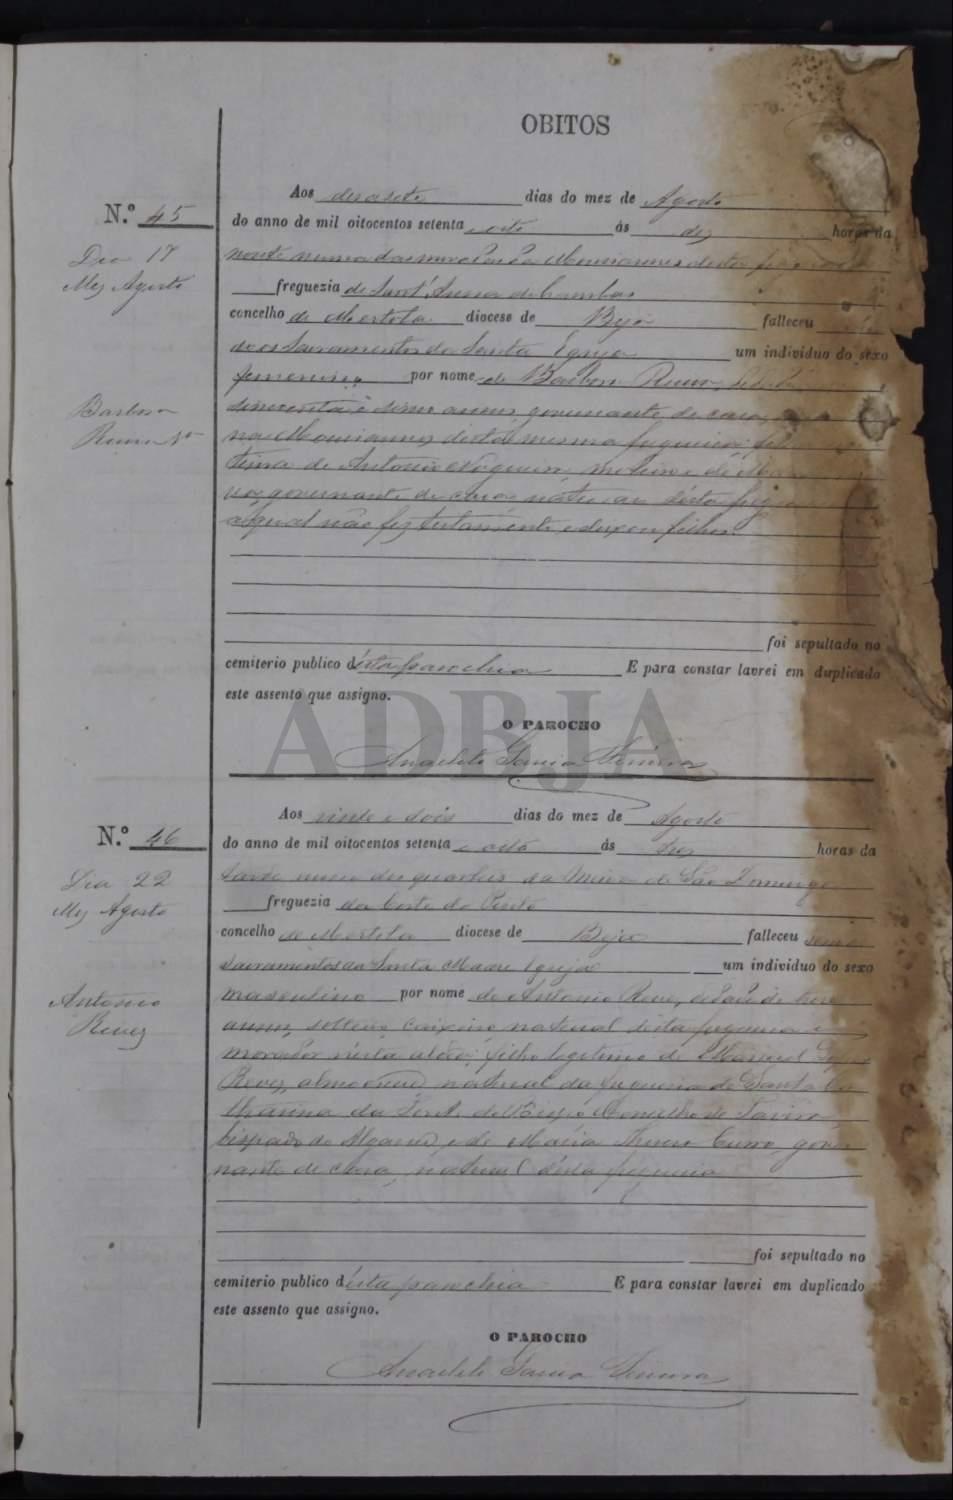 OBITOS
N.º 45
Dia 17
Mez Agosto
Barbora
Aos desasete dias do mez de Agosto
do anno de mil oitocentos setenta e oito ás dez horas da
noute numa das moradas de desta
freguezia de Sant'Anna de Cambas
concelho de Mertola diocese de Beja falleceu
dos Sacramentos da Santa Egreja um individuo do sexo
femenino por nome de Barbora
sincoenta e sinco annos governante de casa,
na desta mesma freguezia
tima de Antonio Nogueira, moleiro e de
governante de casa natural desta
a qual não fez testamento e deixou filhos.
foi sepultado no
cemiterio publico d'esta parochia E para constar lavrei em duplicado
este assento que assigno.
O PAROCHO
Anacleto Garcia
ADBJA
N.º 46
Dia 22
Mez Agosto
Antonio
Revez
Aos vinte e dois dias do mez de Agosto
do anno de mil oitocentos setenta e oito ás tres horas da
tarde numo dos quarteis da Mina de São Domingos
freguezia da Corte do Pinto
concelho de Mertola diocese de Beja falleceu sem
Sacramentos da Santa Madre Egreja um individuo do sexo
masculino por nome de Antonio Revez, edade de treze
annos, solteiro caixeiro natural desta freguezia e
morador nesta aldeia filho legitimo de Manuel
Revez, almocreve, natural da freguezia de Santa Ca
tharina da Fonte do Bispo Concelho de Tavira
bispado do Algarve, e de Maria Thereza gover
nante de casa, natural d'esta freguezia
foi sepultado no
cemiterio publico d'esta parochia E para constar lavrei em duplicado
este assento que assigno.
O PAROCHO
Anacleto Garcia